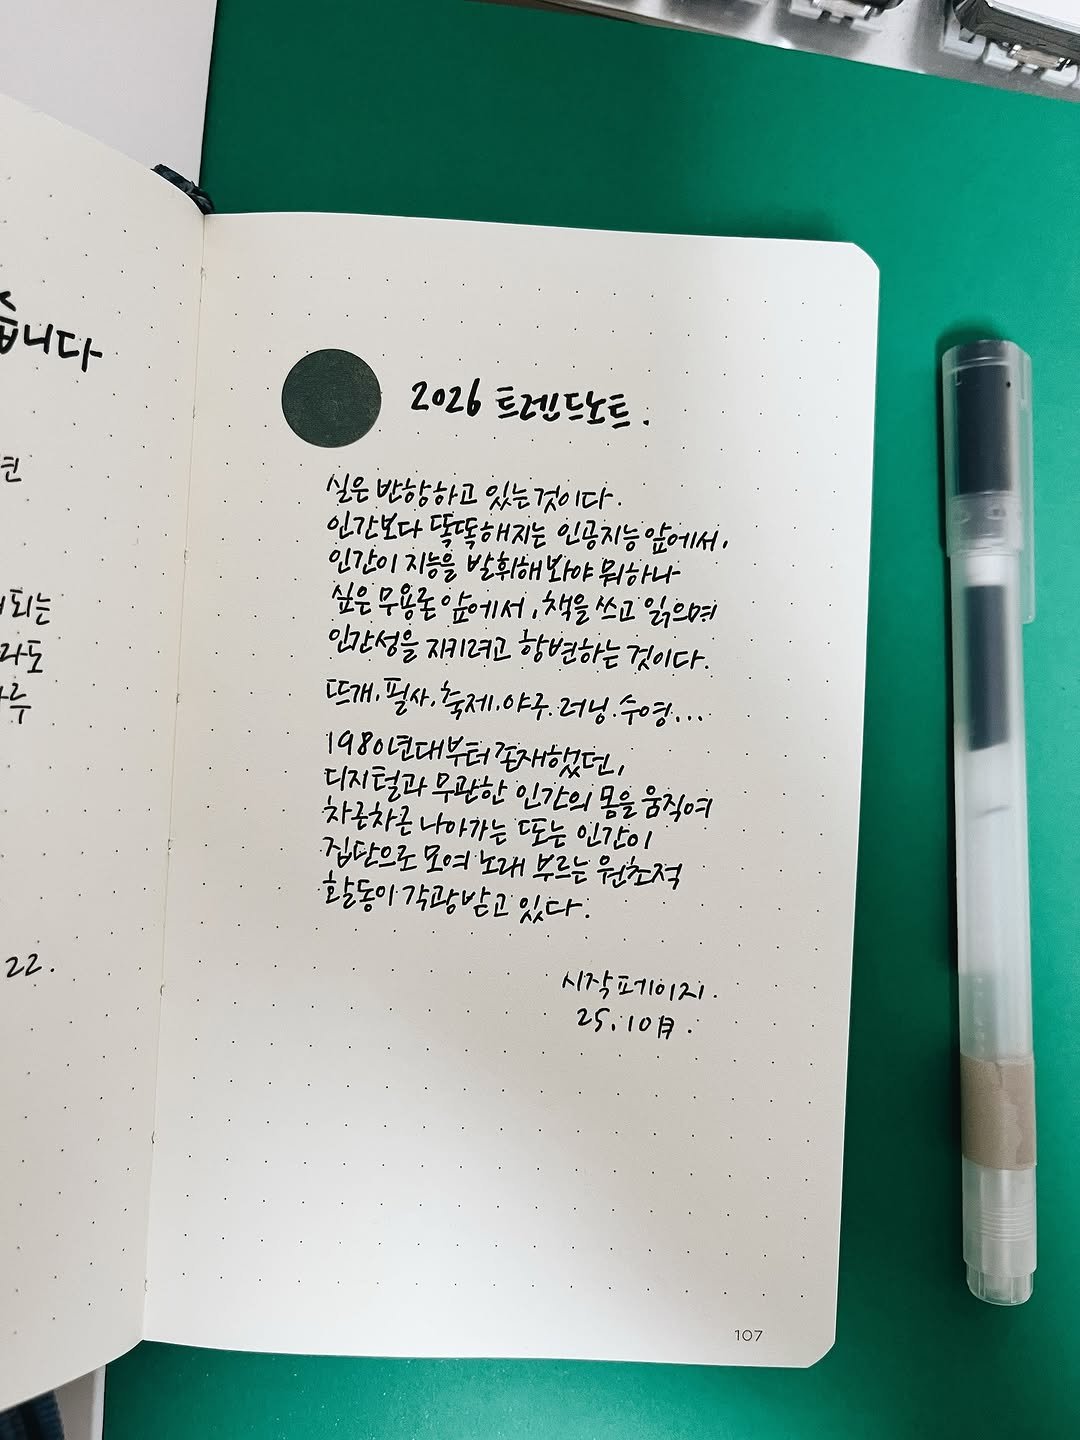 습니다
되는
라도
22.
2026 트렌드노트.
실은 반항하고 있는 것이다.
인간보다 똑똑해지는 인공지능 앞에서,
인간이 지능을 발휘해봐야 뭐하나
싶은 무용론 앞에서, 책을 쓰고 읽으며
인간성을 지키려고 항변하는 것이다.
뜨개. 필사. 축제. 야구. 러닝. 수영...
1980년대부터 존재했던,
디지털과 무관한 인간의 몸을 움직여
차근차근 나아가는 또는 인간이
집단으로 모여 노래 부르는 원초적
활동이 각광받고 있다.
시작페이지.
25. 10月.
107